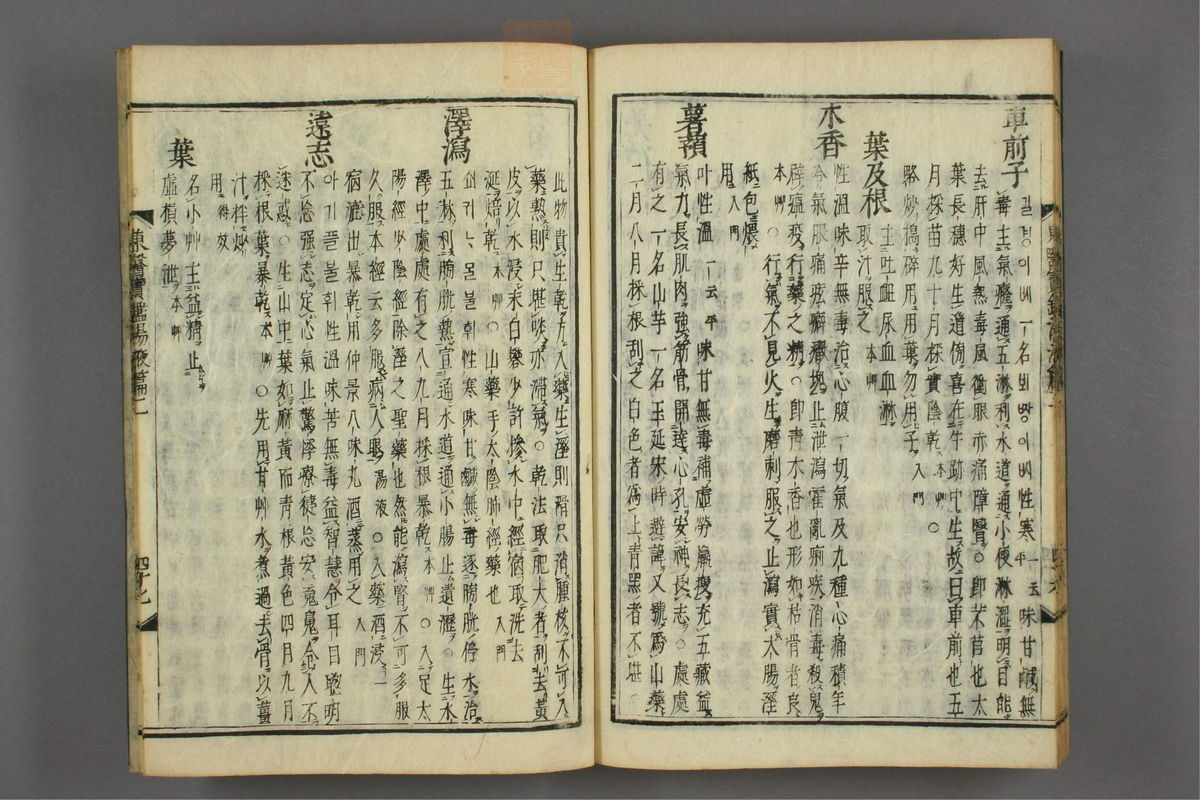 車前子
길경이ᄡᅵ一名뵈ᄧᅡᆼ이ᄡᅵ性寒一云平味甘鹹無
毒主氣癃通五淋利水道通小便淋澁明目能
去肝中風熱毒風衝眼赤痛障瞖○卽芣苢也大
葉長穗好生道傍喜在牛跡中生故曰車前也五
月採苗九十月採實陰乾本艸○
略炒搗碎用用葉勿用子入門
葉及根
主吐衄尿血血淋
取汁服之本艸
木香
性溫味辛無毒治心腹一切氣及九種心痛積年
冷氣脹痛痃癖癥塊止泄瀉霍亂痢疾消毒殺鬼
辟瘟疫行藥之精○卽靑木香也形如枯骨者良
本艸○行氣不見火生磨刺服之止瀉實大腸濕
紙包煨
用入門
薯蕷
맛性溫一云平味甘無毒補虛勞羸瘦充五藏益
氣力長肌肉強筋骨開達心孔安神長志○處處
有之一名山芋一名玉延宋時避諱又號爲山藥
二月八月採根刮之白色者爲上靑黑者不堪○
此物貴生乾方入藥生濕則滑只消腫核不可入
藥熟則只堪啖亦滯氣○乾法取肥大者刮去黃
皮以水浸末白礬少許摻水中經宿取洗去
涎焙乾本艸○山藥手太陰肺經藥也入門
澤瀉
쇠귀ᄂᆞ믈불휘性寒味甘鹹無毒逐膀胱停水治
五淋利膀胱熱宣通水道通小腸止遺瀝○生水
澤中處處有之八九月採根暴乾本艸○入足太
陽經少陰經除濕之聖藥也然能瀉腎不可多服
久服本經云多服病人眼湯液○入藥酒浸一
宿漉出暴乾用仲景八味丸酒蒸用之入門
遠志
아기플불휘性溫味苦無毒益智慧令耳目聰明
不忘强志定心氣止驚悸療健忘安魂魄令人不
迷惑○生山中葉如麻黃而靑根黃色四月九月
採根葉暴乾本艸○先用甘艸水煮過去骨以薑
汁拌炒
用得效
葉
名小艸主益精止
虛損夢泄本艸
東醫寶鑑湯液篇二
四十七